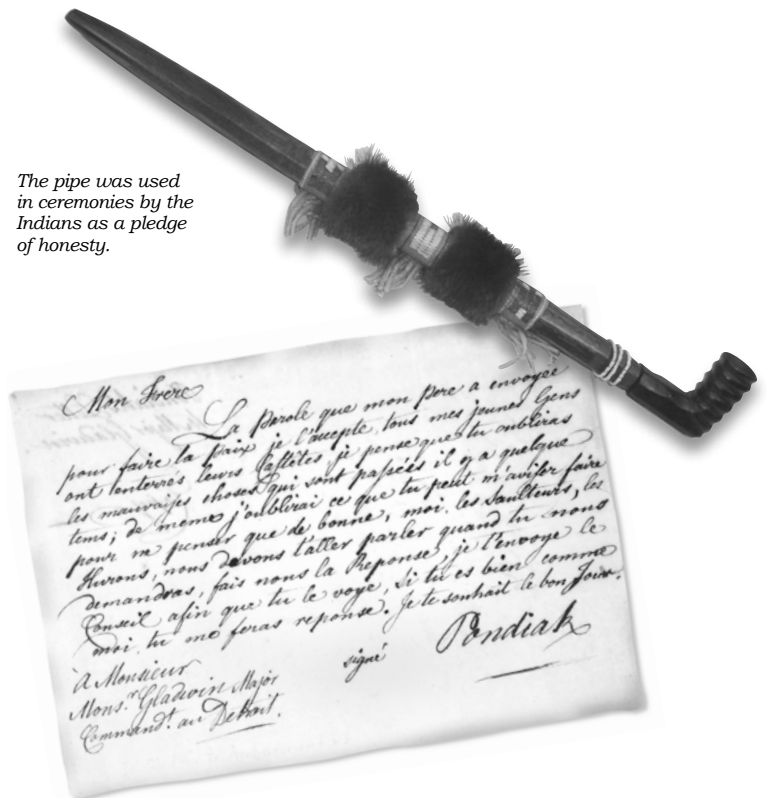 The pipe was used
in ceremonies by the
Indians as a pledge
of honesty.
Mon Frere
La parole que mon pere a envoyée
pour faire la paix je l'accepte, tous mes jeunes Gens
ont enterrés leurs Casstêtes, je pense que tu oubliras
les mauvaises choses qui sont passées il y a quelque
tems; de meme j'oublirai ce que tu peut m'avisser faire
pour ne penser que de bonne, moi, les Saulteurs, les
Hurons, nous devons t'aller parler quand tu nous
demandras, fais nous la Reponse, je t'envoye le
Conseil afin que tu le voye, Si tu es bien comme
moi, tu me feras reponse. Je te souhait le bon Jour.
signé Pondiak
à Monsieur
Monsr. Gladwin Major
Commandt. au Detroit.